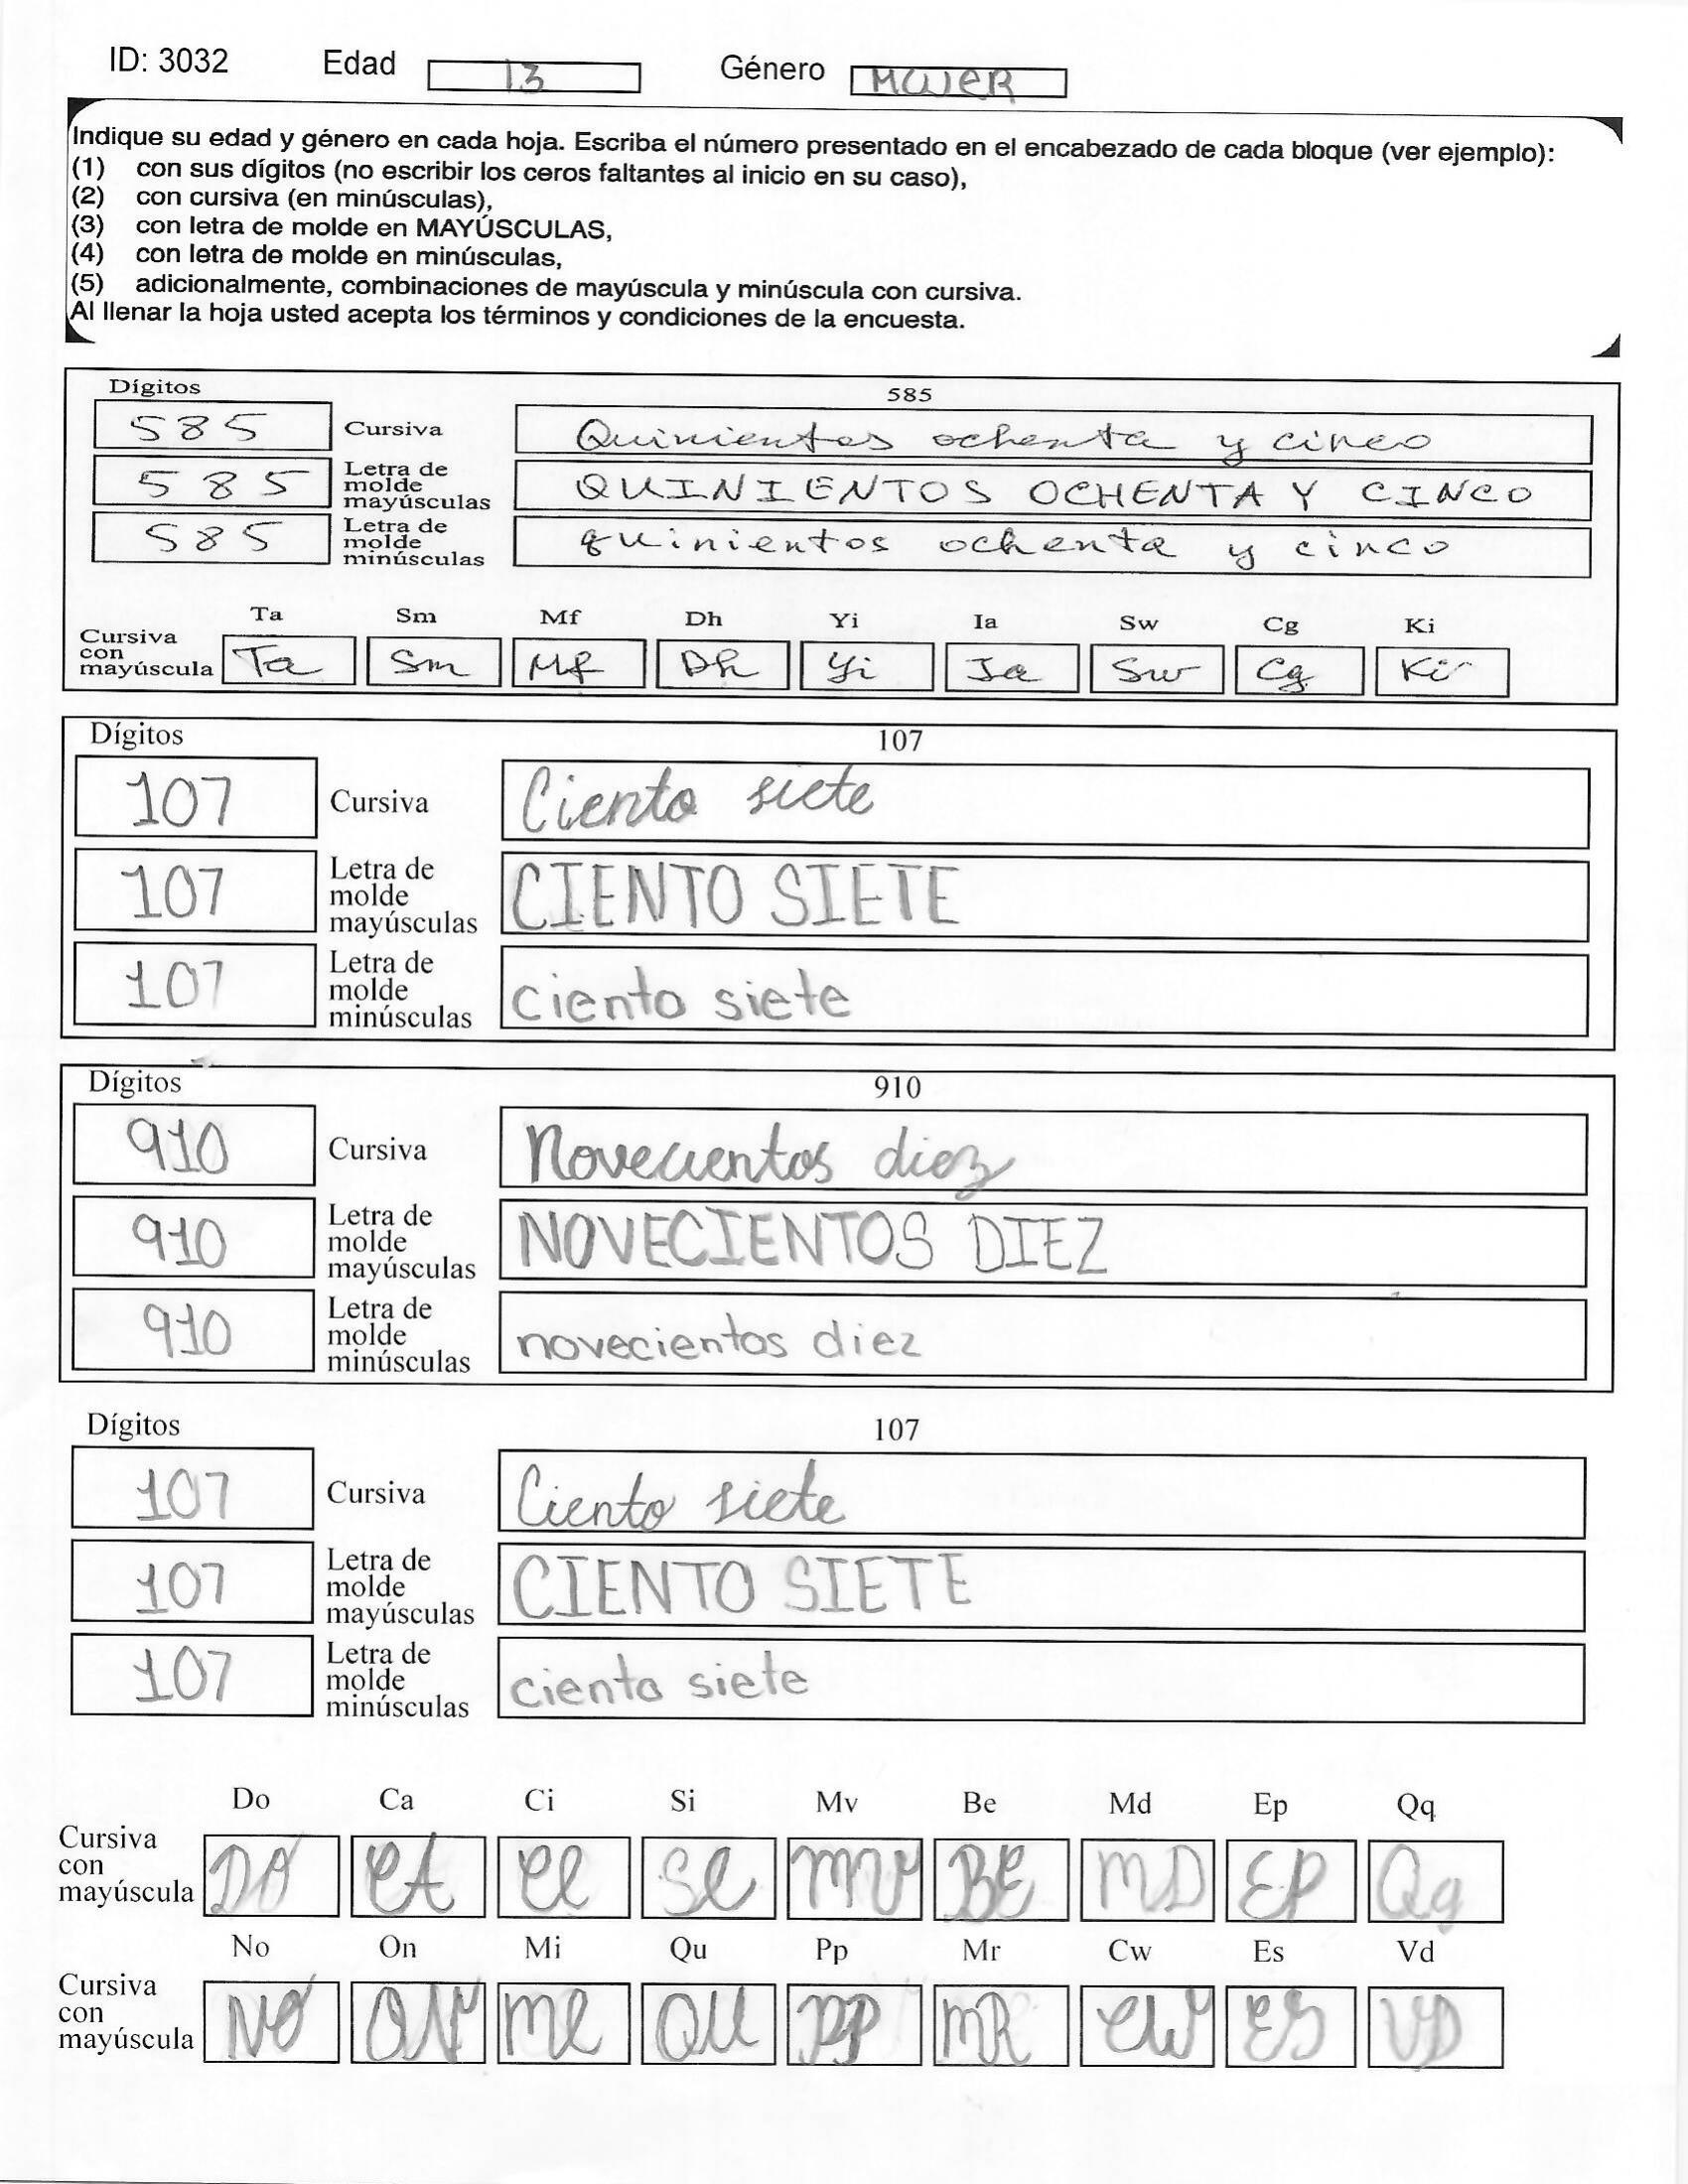 ID: 3032 Edad 13 Género MUJER
Indique su edad y género en cada hoja. Escriba el número presentado en el encabezado de cada bloque (ver ejemplo):
(1) con sus dígitos (no escribir los ceros faltantes al inicio en su caso),
(2) con cursiva (en minúsculas),
(3) con letra de molde en MAYÚSCULAS,
(4) con letra de molde en minúsculas,
(5) adicionalmente, combinaciones de mayúscula y minúscula con cursiva.
Al llenar la hoja usted acepta los términos y condiciones de la encuesta.
Dígitos 585
585 Cursiva Quinientos ochenta y cinco
585 Letra de molde mayúsculas QUINIENTOS OCHENTA Y CINCO
585 Letra de molde minúsculas quinientos ochenta y cinco
Ta Sm Mf Dh Yi Ia Sw Cg Ki
Cursiva con mayúscula Ta Sm Mf Dh Yi Ia Sw Cg Ki
Dígitos 107
107 Cursiva Ciento siete
107 Letra de molde mayúsculas CIENTO SIETE
107 Letra de molde minúsculas ciento siete
Dígitos 910
910 Cursiva Novecientos diez
910 Letra de molde mayúsculas NOVECIENTOS DIEZ
910 Letra de molde minúsculas novecientos diez
Dígitos 107
107 Cursiva Ciento siete
107 Letra de molde mayúsculas CIENTO SIETE
107 Letra de molde minúsculas ciento siete
Do Ca Ci Si Mv Be Md Ep Qq
Cursiva con mayúscula DO CA CI SI MV BE MD EP Qq
No On Mi Qu Pp Mr Cw Es Vd
Cursiva con mayúscula NO ON MI QU PP MR CW ES VD